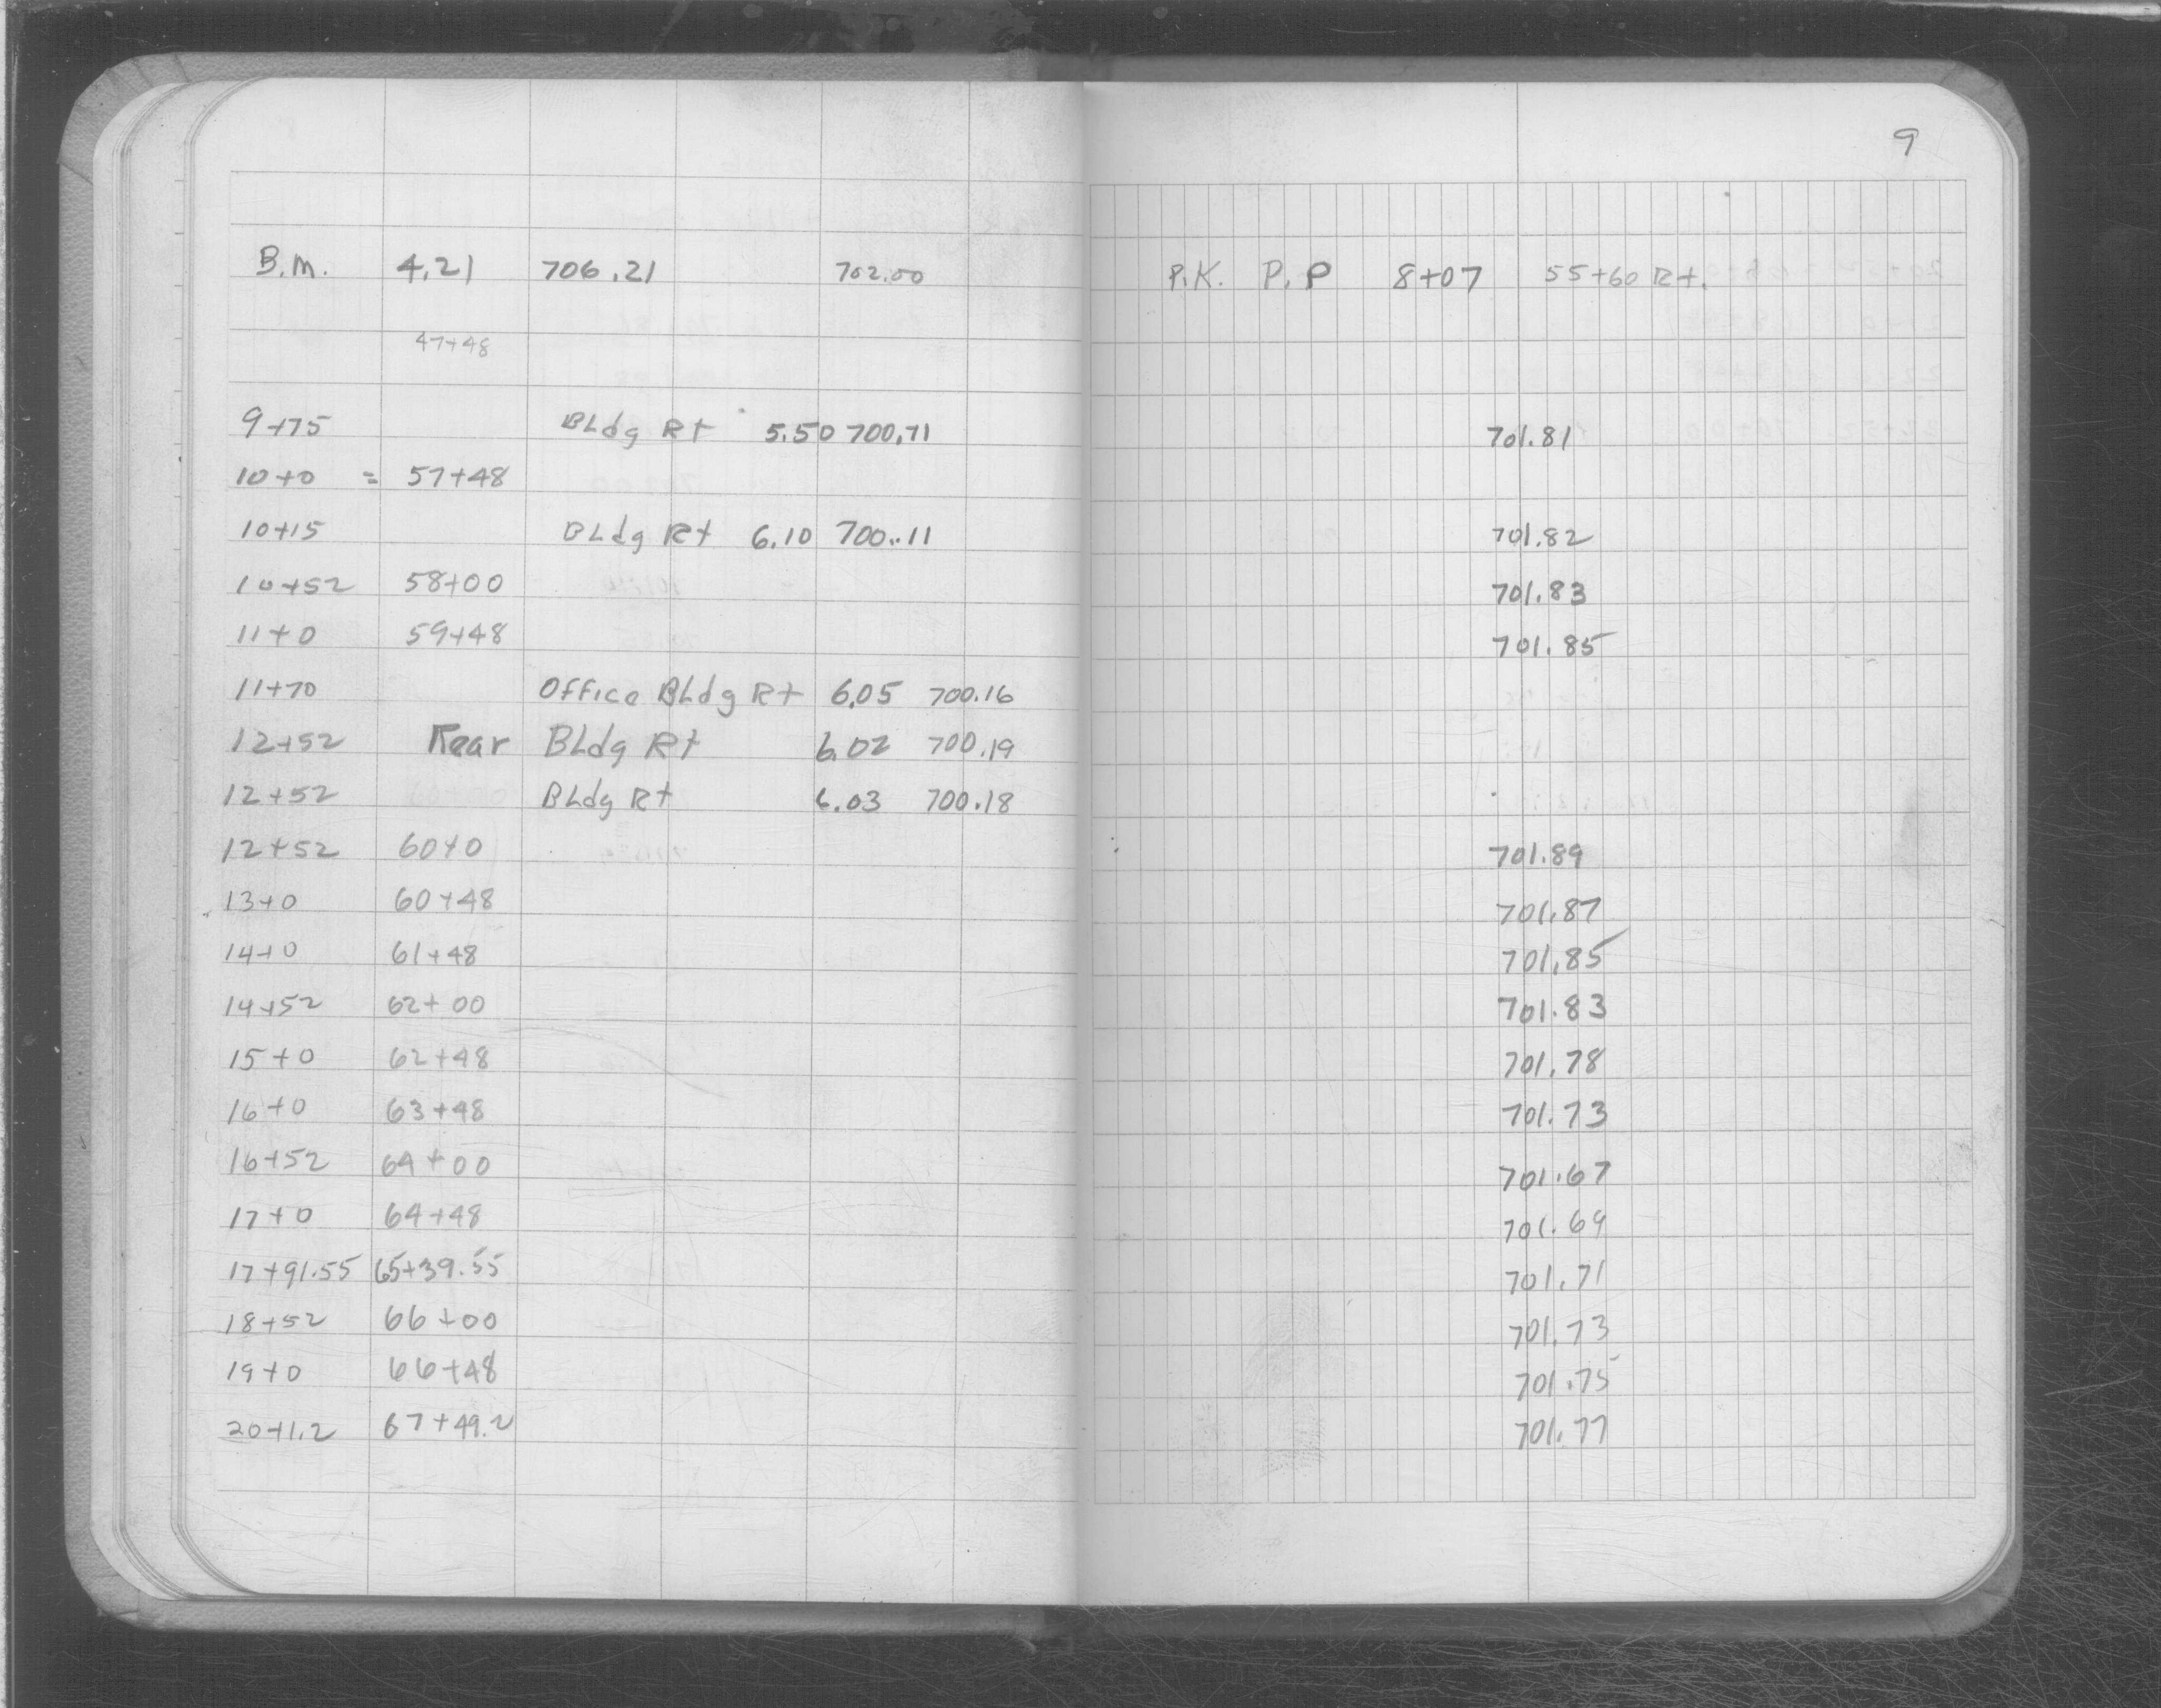 9
B.M. 4.21 706.21 702.00 P.K. P.P 8+07 55+60 Rt.
47+48
9+75 BLdg Rt 5.50 700.71 701.81
10+0 = 57+48
10+15 BLdg Rt 6.10 700..11 701.82
10+52 58+00 701.83
11+0 59+48 701.85
11+70 Office BLdg Rt 6.05 700.16
12+52 Rear BLdg Rt 6.02 700.19
12+52 BLdg Rt 6.03 700.18
12+52 60+0 701.89
13+0 60+48 701.87
14+0 61+48 701.85
14+52 62+00 701.83
15+0 62+48 701.78
16+0 63+48 701.73
16+52 64+00 701.67
17+0 64+48 701.69
17+91.55 65+39.55 701.71
18+52 66+00 701.73
19+0 66+48 701.75
20+1.2 67+49.2 701.77